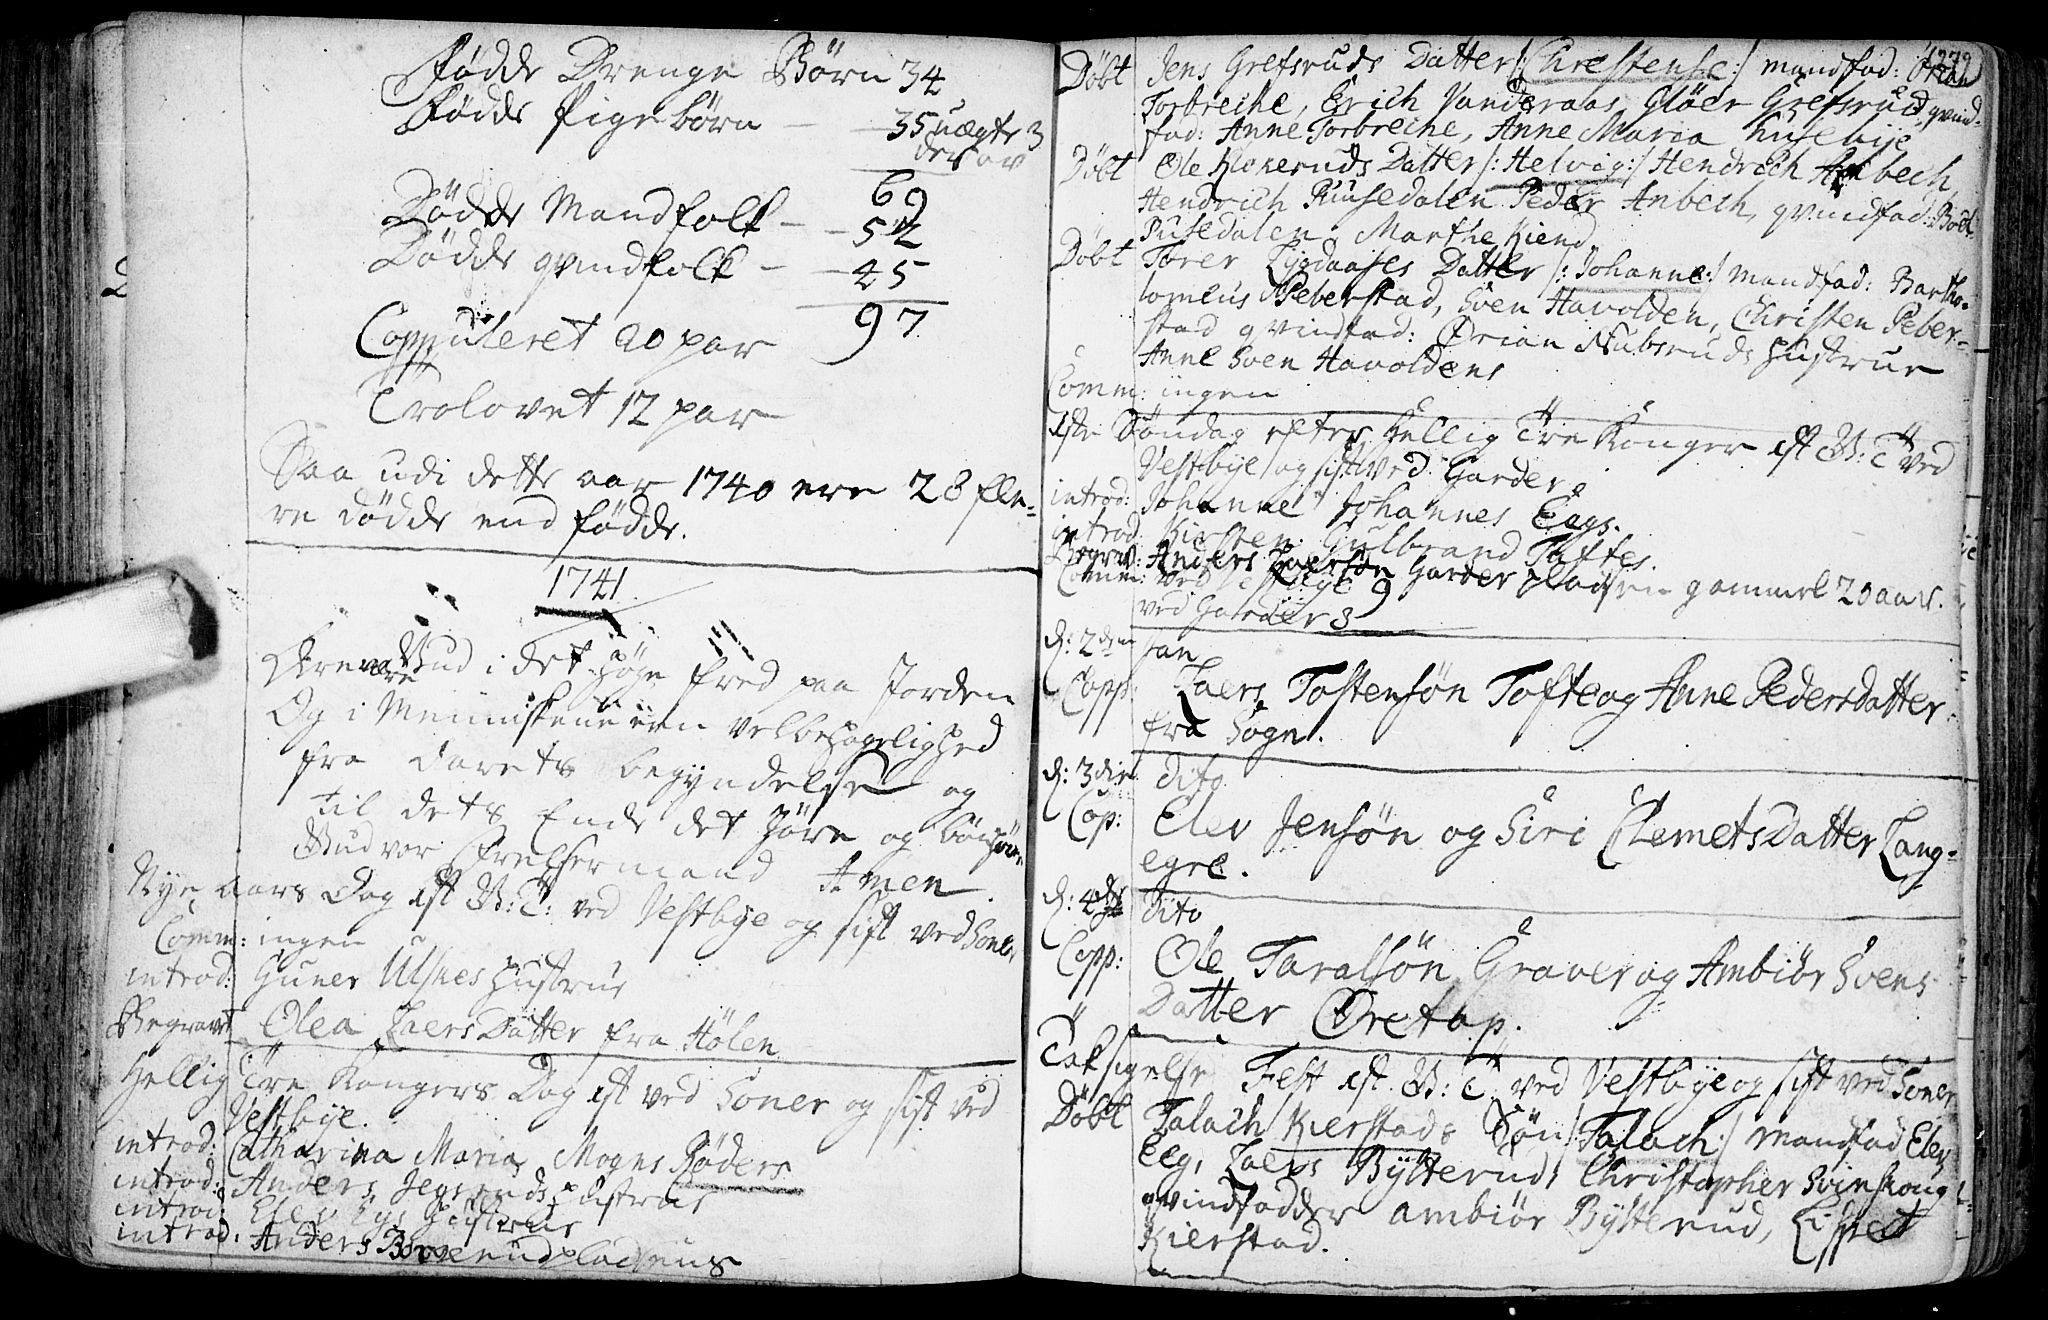 Fødde Drenge Børn 34
Fødde Pigebørn — 35 uægte 3
derav
69
Dødde Mandfolk — 52
Dødde qvindfolk — 45
97
Copuleret 20 par
Trolovet 12 par
Saa udi dette aar 1740 ere 28 fle-
re dødde end fødde.
1741.
Ære være Gud i det høye fred paa Jorden
Og i Menniskene een velbehagelighed
fra Aarets begyndelse og
til dets Ende det høre og bønhøre
Gud vor frelsermand Amen.
Nye aars Dag est G: T: ved Vestbye og sist ved Soner
Comm: ingen
introd: Guner Ulsnes Hustrue
Begravet Olea Laers Datter fra Hølen
Hellig Tre Kongers Dag est ved Soner og sist ved
Vestbye.
introd: Catharina Maria Mogns Røders
introd: Anders Jegsruds Hustrue
introd: Elev Egs Hustrue
introd: Anders pladsens
279
Døbt Jens Grefsruds Datter /: Chrestense :/ mandfad:
Torbreche, Erich Vanderaas, Gløer Grefsrud, qvind-
fad: Anne Torbreche, Anne Maria Husebye
Døbt Ole Klokeruds Datter /: Helvig :/ Hendrich Anbech,
Hendrich Pussedalen Peder Anbech, qvindfad: Bodl
Pusedalen, Marthe Kiend
Døbt Torer Lysdaases Datter /: Johanne :/ Mandfad: Bartho-
lomeus Peberstad, Sven Havolden, Christen Peber-
stad qvindfad: Ørian Nubsruds Hustrue
Anne Sven Havoldens
Comm: ingen
1ste Søndag efter Hellig Tre Konger est G: T ved
Vestbye og sist ved Garder
introd: Johanne Johannes Eegs.
introd Kirsten Gulbrand Toftes.
Begrav: Anders Laersøn Garder pladsen gammel 20 aar.
Comm: ved Vestbye 9
ved Garder 3
d: 2den Jan
Copp: Laers Tostensøn Tofte og Anne Pedersdatter
fra Sogn.
d: 3die dito
Cop: Elev Jensøn og Siri Clemetsdatter Lang-
egre.
d: 4de dito
Copp: Ole Taralsøn Graver og Ambiør Svens
Datter Øretop.
Taksigelse Fest est. G: T: ved Vestbye og sist ved Soner
Døbt Talach Kierstads Søn /: Talach :/ Mandfad Elev
Eeg, Laers Bytterud, Christopher Svinskoug
qvindfadder Ambiør Bytterud, Lisbet
Kierstad.